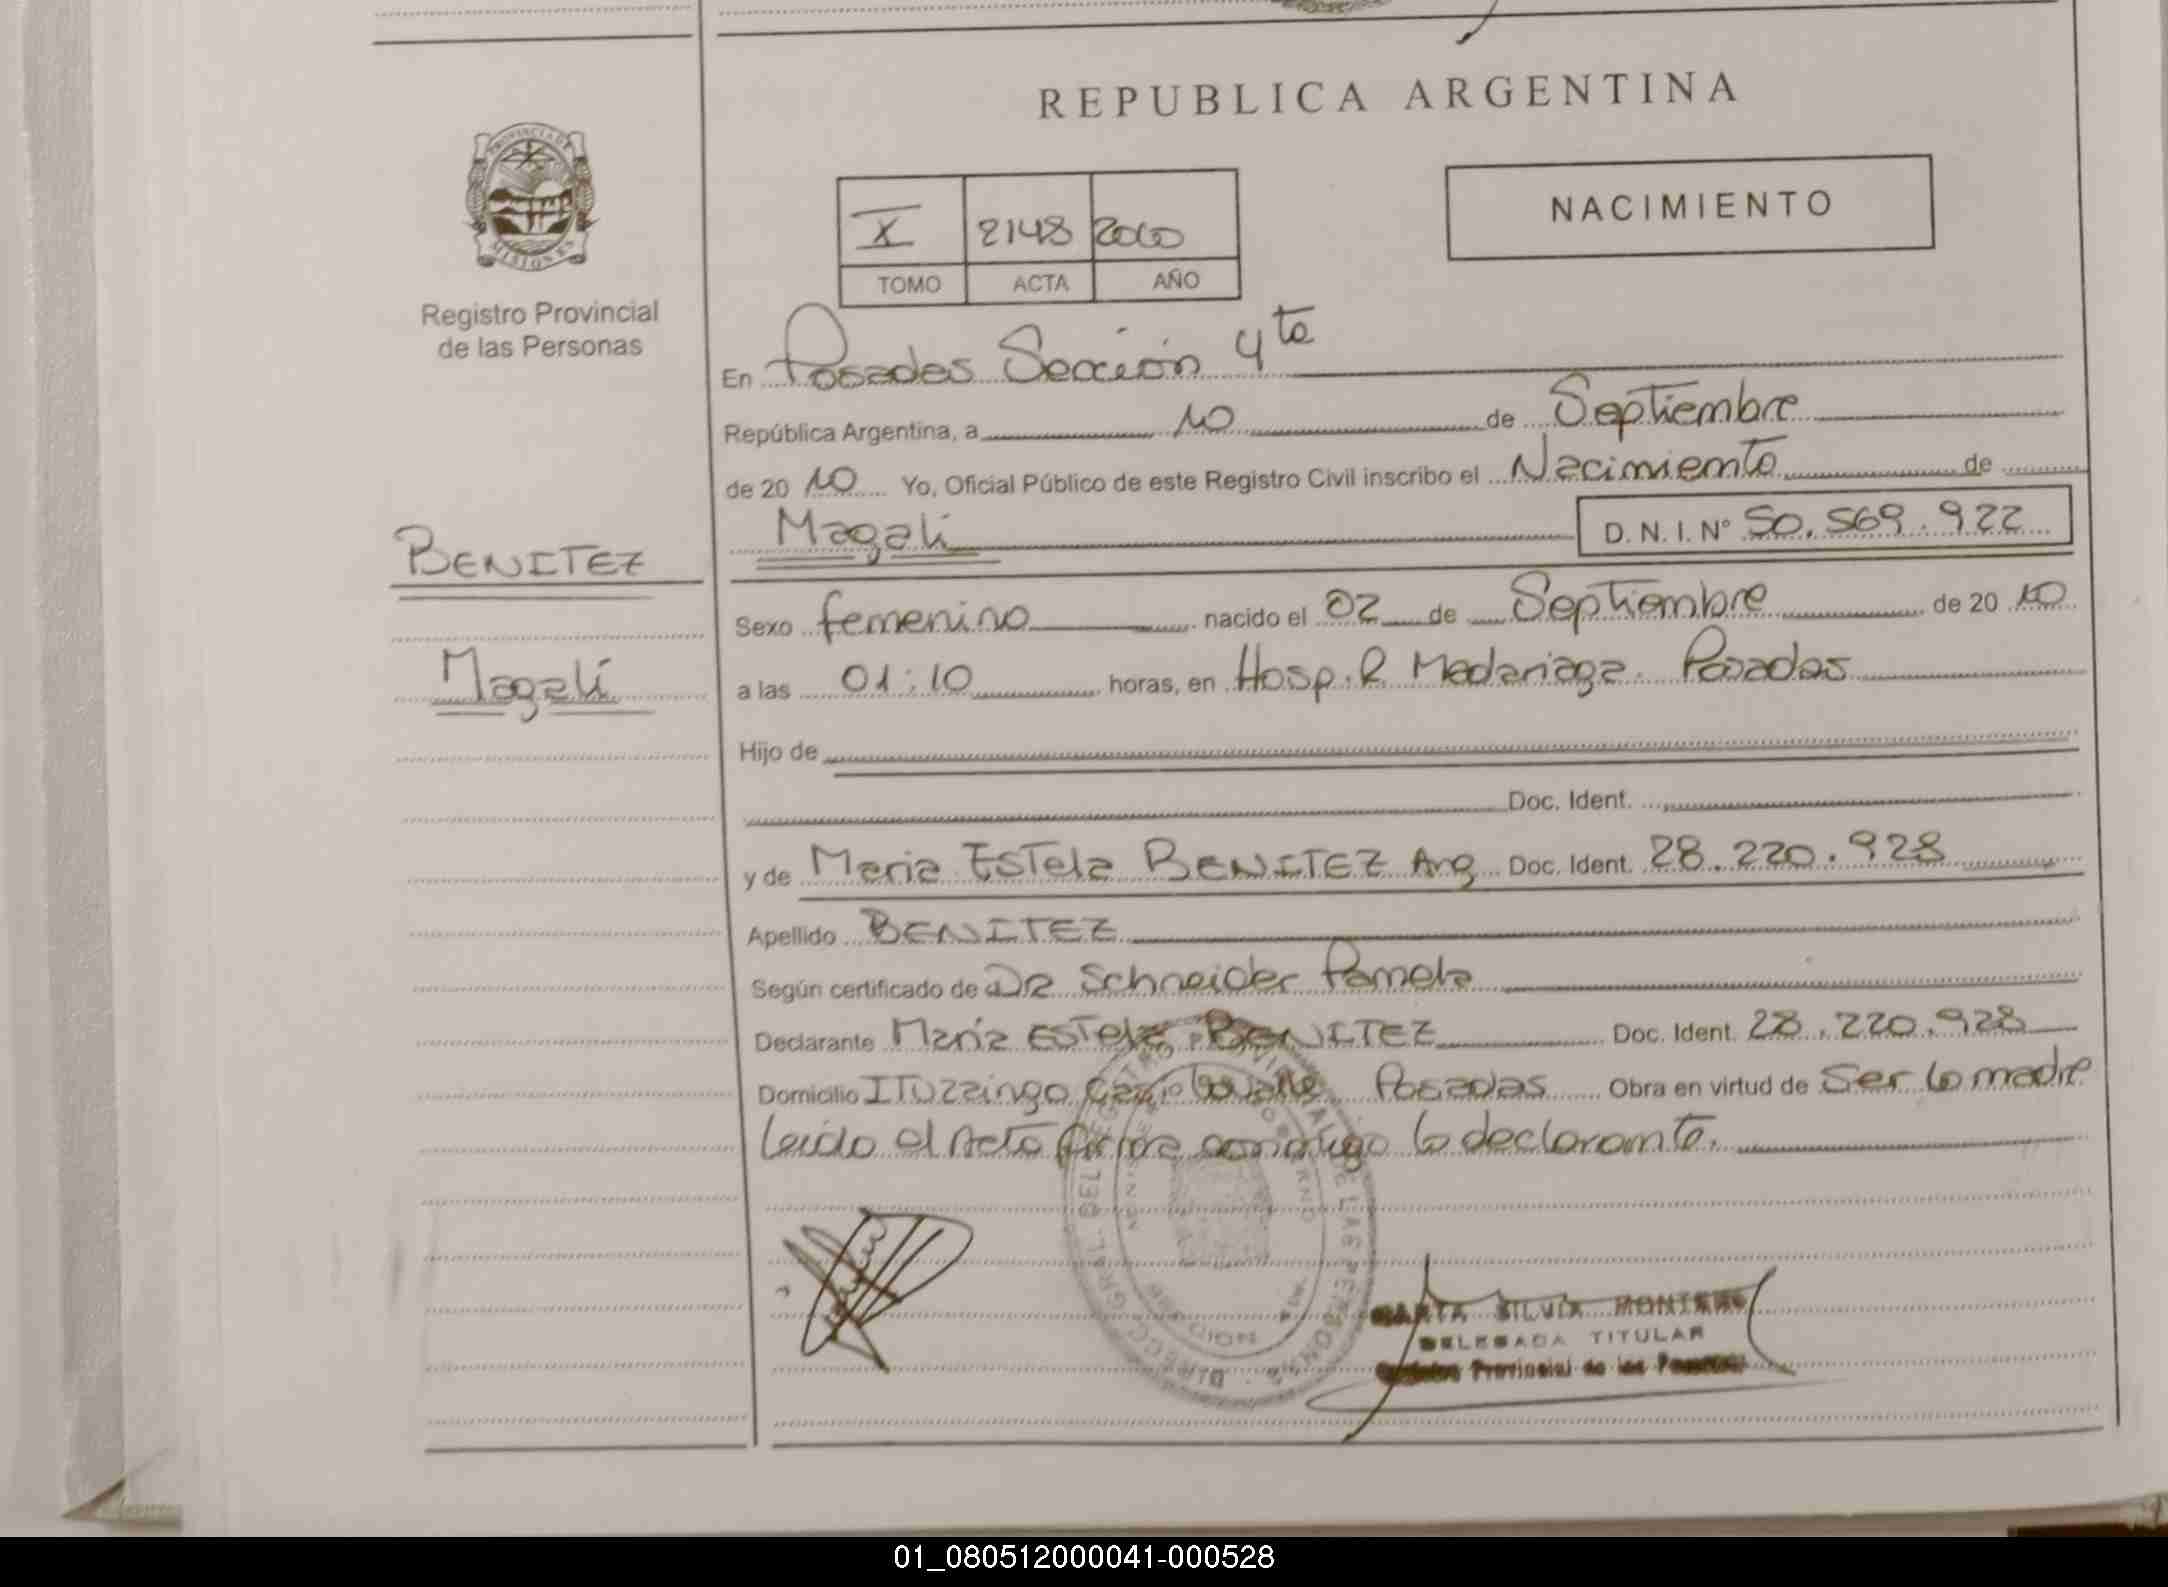 REPUBLICA ARGENTINA
PROVINCIA DE
MISIONES
Registro Provincial
de las Personas
X 2148
TOMO ACTA AÑO
NACIMIENTO
En Posadas Sección 4ta
República Argentina, a 10 de Septiembre
de 20 10 Yo, Oficial Público de este Registro Civil inscribo el Nacimiento de
Magalí D.N.I.Nº 50.569.922
BENITEZ
Magalí
Sexo femenino nacido el 02 de Septiembre de 20 10
a las 01:10 horas, en Hosp. R Madariaga. Posadas
Hijo de
Doc. Ident.
y de Maria Estela BENITEZ Arg Doc. Ident. 28.220.928
Apellido BENITEZ
Según certificado de Dra Schneider Pamela
Declarante María Estela BENITEZ Doc. Ident. 28.220.928
Domicilio Ituzaingo Posadas Obra en virtud de Ser la madre
Leido el Acta firma conmigo la declarante.
MARTA SILVIA MONTERO
DELEGADA TITULAR
Registro Provincial de las Personas
01_080512000041-000528